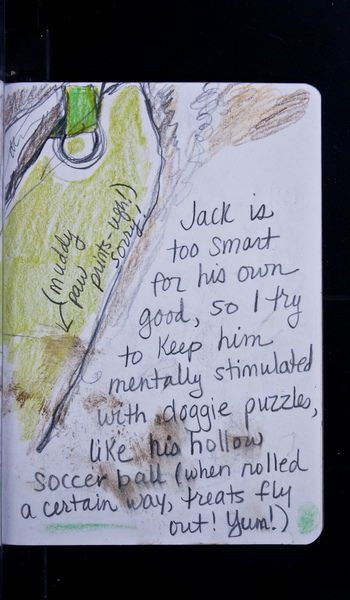 (muddy
paw
prints-ugh!)
sorry.
Jack is
too smart
for his own
good, so I try
to keep him
mentally stimulated
with doggie puzzles,
like his hollow
soccer ball (when rolled
a certain way, treats fly
out! Yum!)